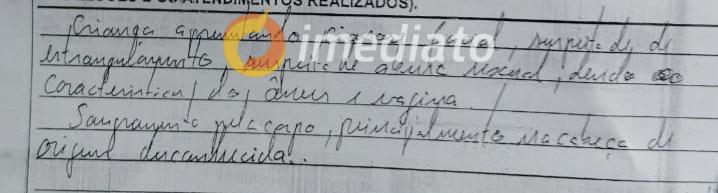 REALIZADOS).
imediato
Criança apresentando rigidez , suspeita de
estrangulamento, suspeita de abuso sexual, devido ao
características do ânus e vagina.
Sangramento pelo corpo, principalmente na cabeça de
origem desconhecida.